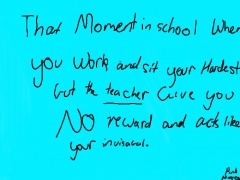 That Moment in school When
you Work and sit your Hardest
but the teacher Give you
No reward and acts like
your invisabal.